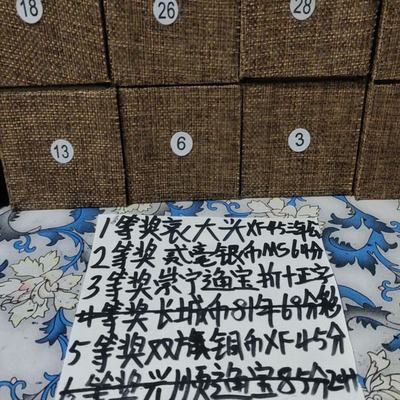 18 26 28
13 6 3
1等奖袁大头XF45
2等奖 贰毫银币MS64分
3等奖崇宁通宝折十正字
4等奖长城币81年69分
5等奖双旗铜币XF45分
6等奖兴顺通宝85分